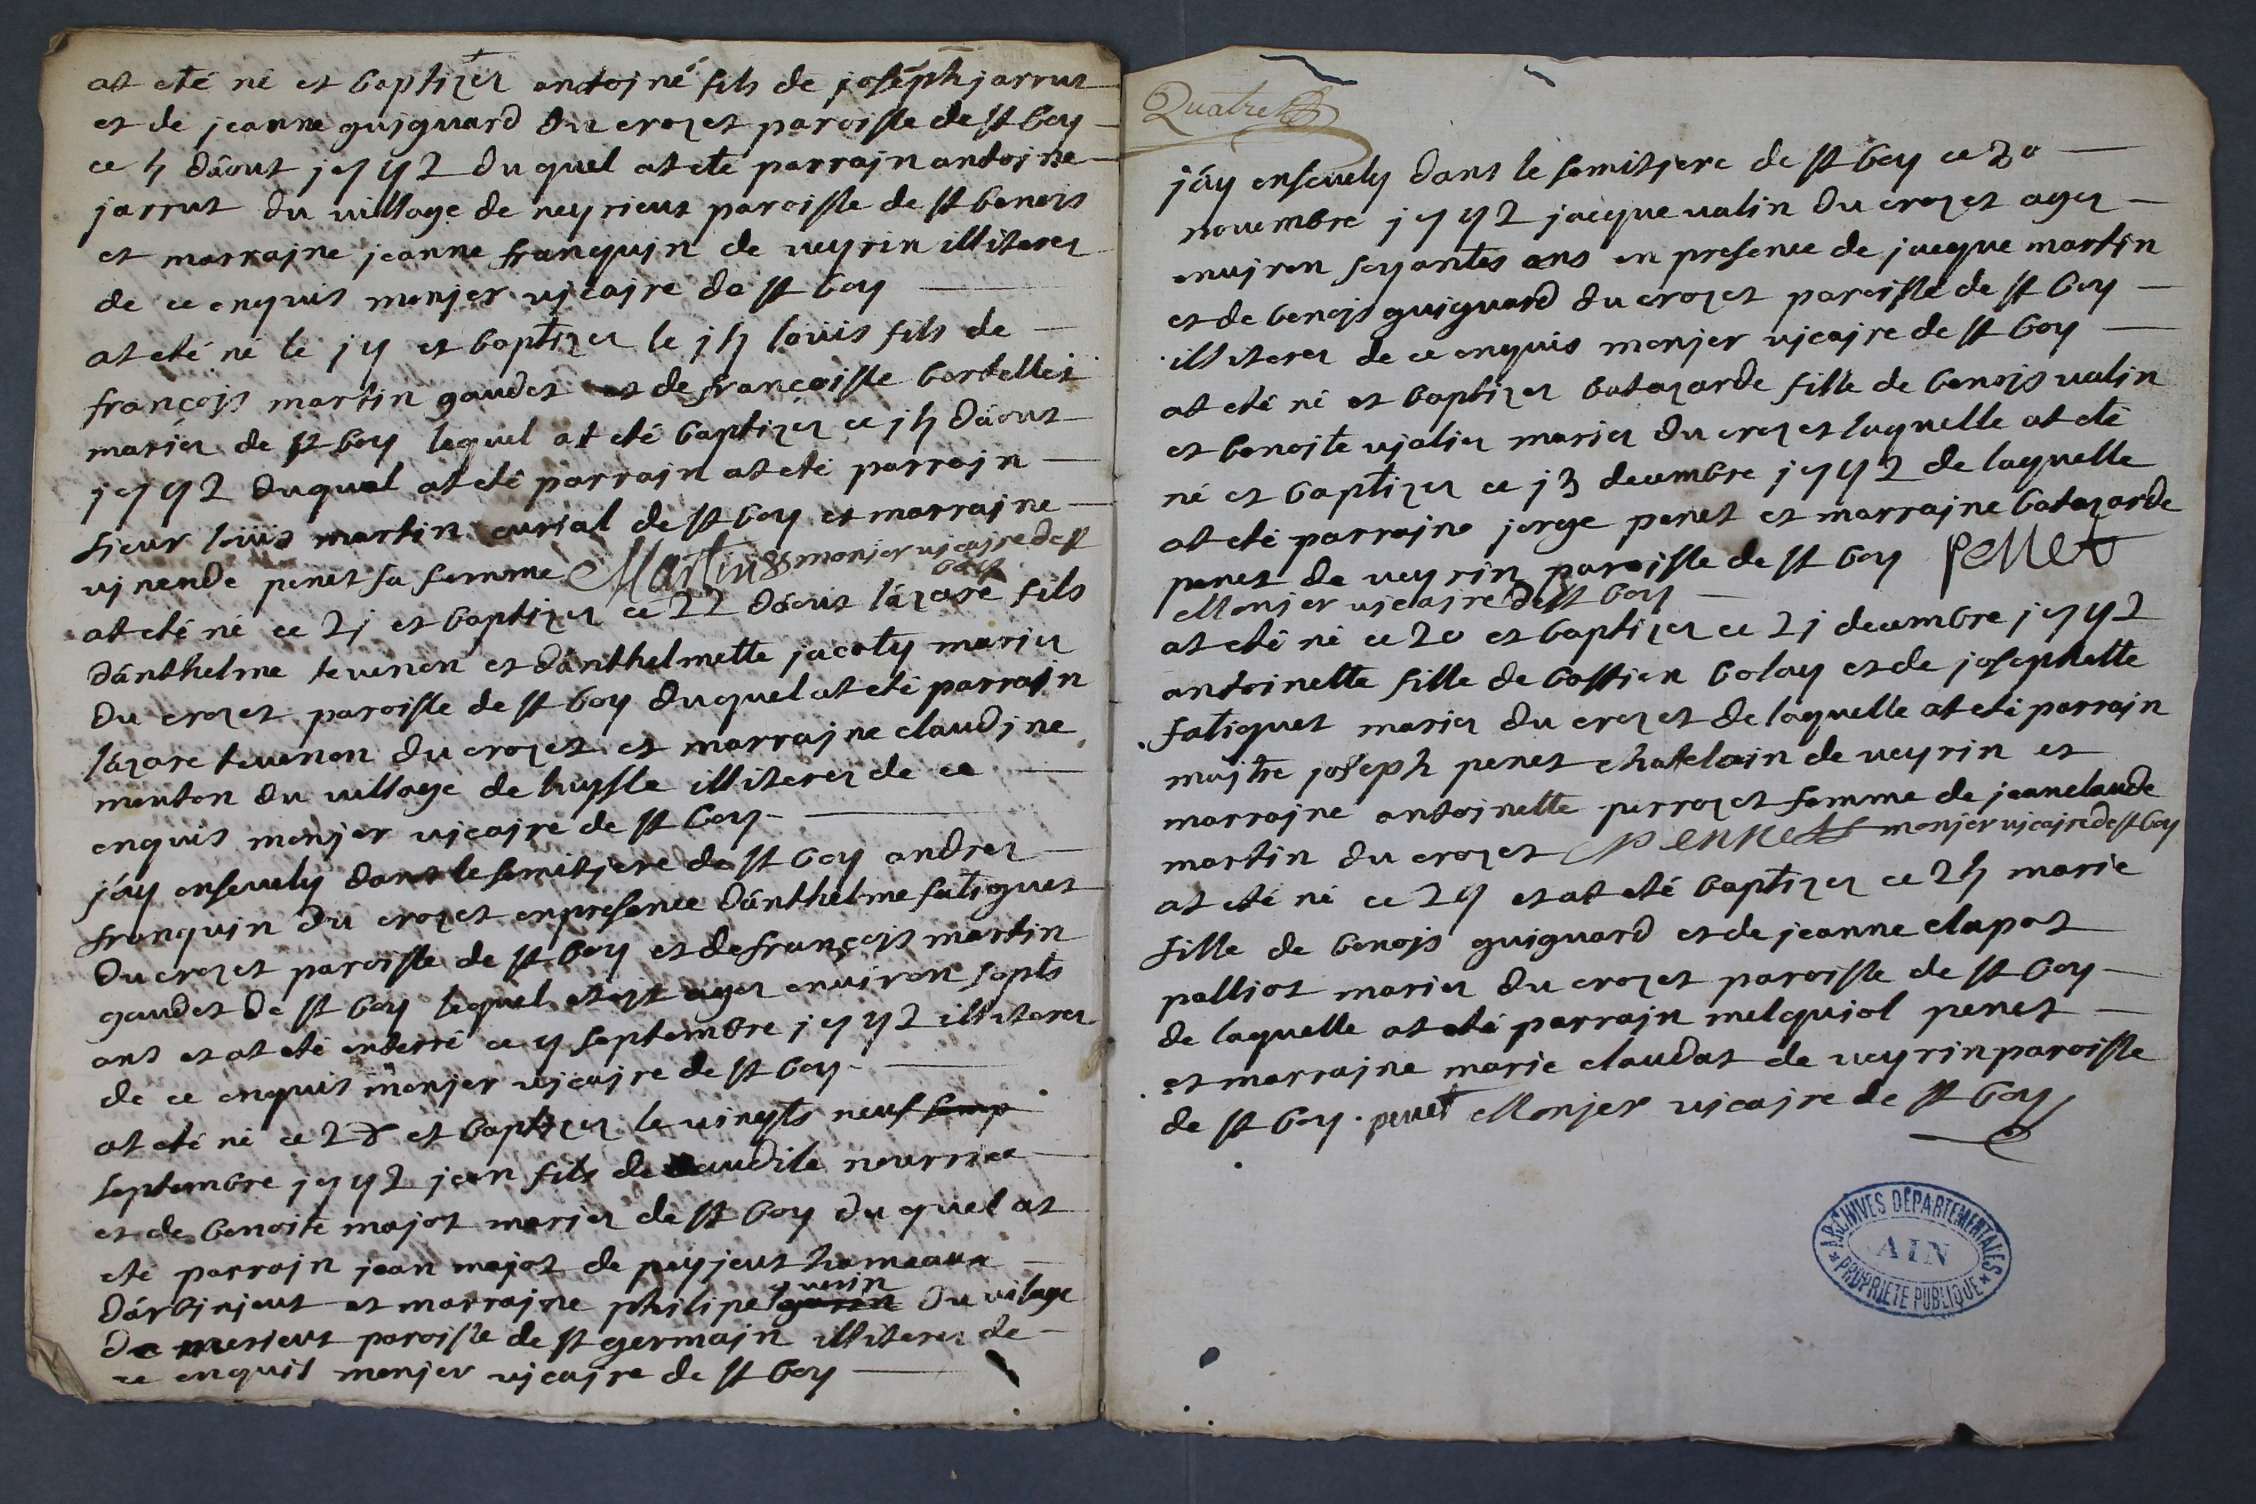 at eté né et baptizer antojne fils de joseph jarrut
et de jeanne guiguard du crozet paroisse de st boy
ce 5 dáout 1692 du quel at ete parrajn antojne
jarrut du village de neyrieux paroisse de st benois
et marrajne jeanne franquin de veyrin illiterez
de ce enquis monjer vjcajre de st boy
at eté né le 14 et baptizer le 15 loüis fils de
françojs martin gaudet et de françoisse bertellet
mariez de st boy lequel at eté baptizer ce 15 dáout
1692 duquel at eté parrajn at eté parrajn
sieur loüis martin curial de st boy et marrajne
vjnende penet sa femme Martin monjer vjcajre de st
boy
at eté né ce 21 et baptizer ce 22 dáout lázare fils
dánthelme tevenon et dánthelmette jacoty mariez
du crozet paroisse de st boy duquel at eté parrajn
lázare tevenon du crozet et marrajne claudjne
monton du village de huysse illiterez de ce
enquis monjer vjcajre de st boy
jáy ensevely dans le semitjere de st boy andrez
franquin du crozet en presence dánthelme fatiguet
du crozet paroisse de st boy et de françojs martin
gaudet de st boy lequel etojt agez environ septs
ans et at eté enterré ce 4 septembre 1692 illiterez
de ce enquis monjer vjcajre de st boy
at eté né ce 28 et baptizer le vingts neuf semp
septembre 1692 jean fils de claudile nourrice
et de benoite majot mariez de st boy duquel at
ete parrajn jean majot de peyjeux hameaux
dárbjnjeux et marrajne philipe garin guerin du vilage
de merieux paroisse de st germajn illiterez de
ce enquis monjer vjcajre de st boy
Quatre
jáy ensevely dans le semitjere de st boy ce 20
novembre 1692 jacque valin du crozet agez
envjron soyantes ans en presence de jacque martin
et de benojs guiguard du crozet paroisse de st boy
illiterez de ce enquis monjer vjcajre de st boy
at eté né et baptizer batazarde fille de benojs valin
et benojte vjalier mariez du crozet laquelle at eté
né et baptizer ce 13 decembre 1692 de laquelle
at eté parrajno jorge penet et marrajne batazarde
penet de veyrin paroisse de st boy penet
Monjer vjcajre de st boy
at eté né ce 20 et baptizer ce 21 decembre 1692
antoinette fille de bastien bolay et de josephette
fatiguet mariez du crozet de laquelle at eté parrajn
majtre joseph penet chatelain de veyrin et
marrajne antojnette perrozet femme de jeanclaude
martin du crozet pennet monjer vjcajre de st boy
at eté né ce 24 et at eté baptizer ce 25 marie
fille de benojs guiguard et de jeanne clapot
palliot mariez du crozet paroisse de st boy
de laquelle at eté parrajn melquiol penet
et marrajne marie claudat de veyrin paroisse
de st boy . penet Monjer vjcajre de st boy
ARCHIVES DÉPARTEMENTALES
AIN
PROPRIETE PUBLIQUE